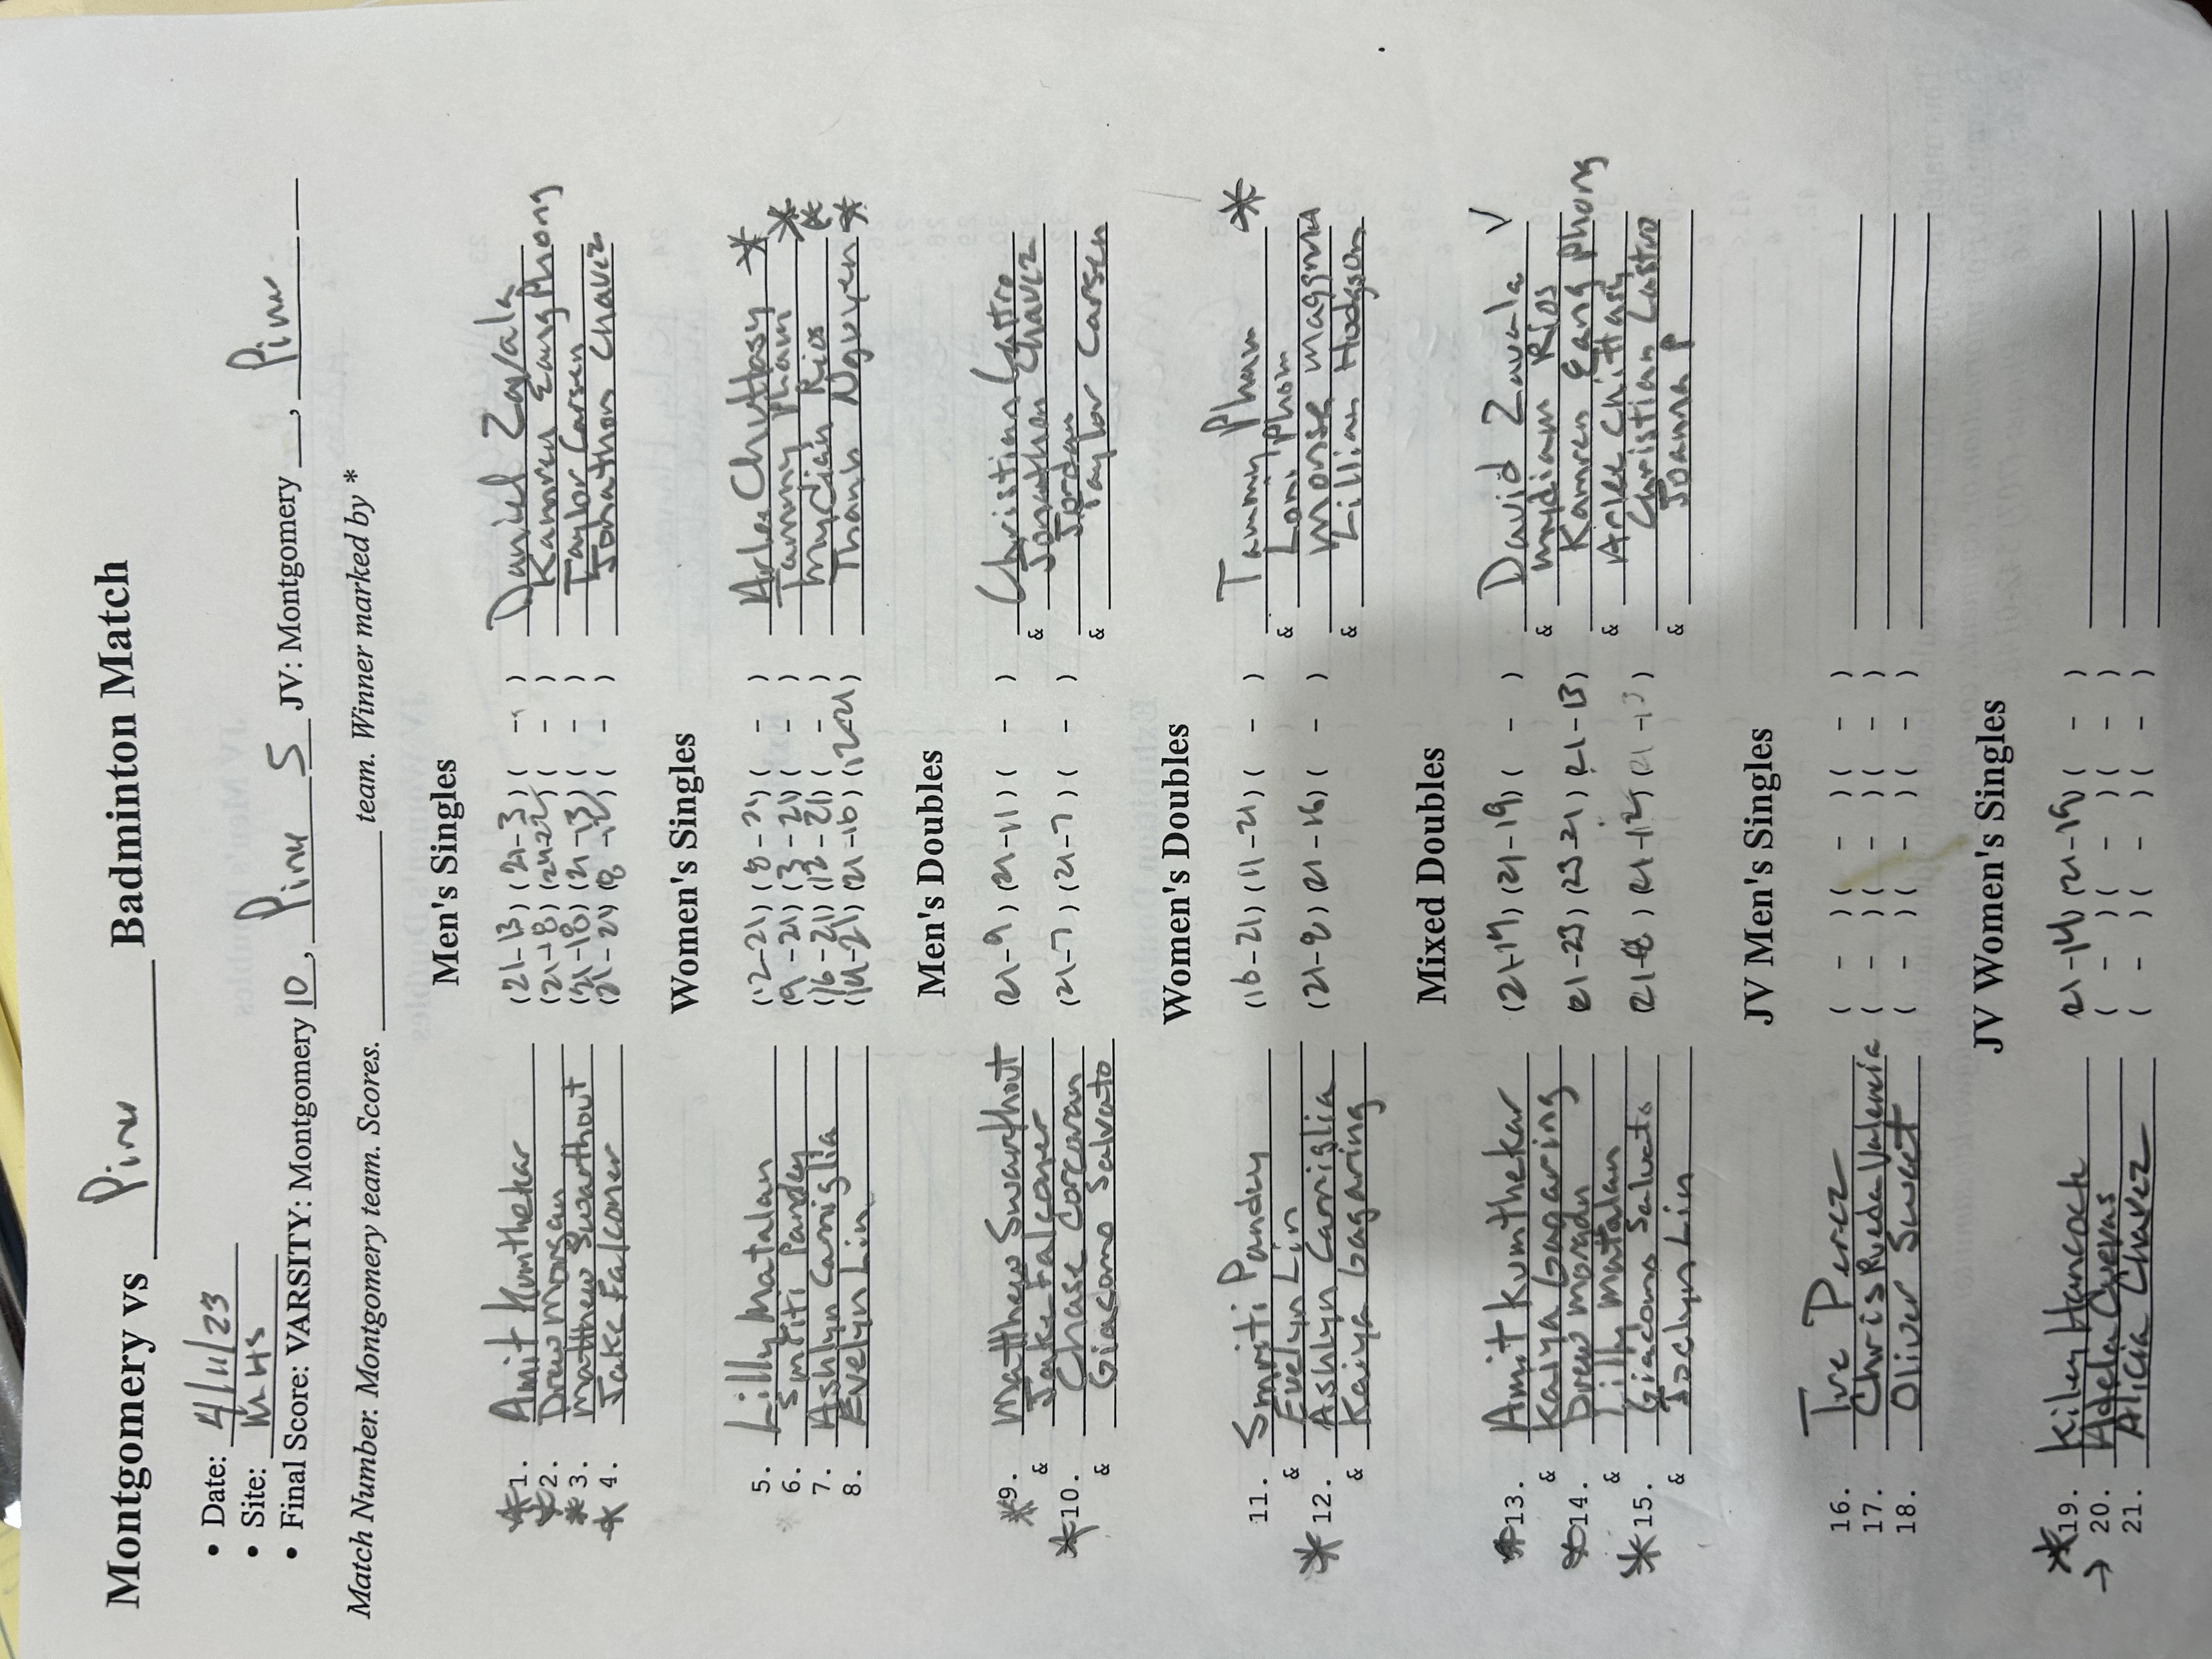 Montgomery vs Pinu Badminton Match
• Date: 4/11/23
• Site: MHS
• Final Score: VARSITY: Montgomery 10, Pinu 5 JV: Montgomery ___, Pinu ___
Match Number. Montgomery team. Scores. ___ team. Winner marked by *
Men's Singles
*1. Amit Kumthekar (21-13)(21-3)( - ) Daniel Zavala
*2. Drew Morgan (21-18)( - ) Kamren Eang Phong
*3. Matthew Swarthout (21-18)(21-13)( - ) Taylor Carsen
*4. Jake Falconer ( - ) Johathon Chavez
Women's Singles
5. Lilly Matalan (12-21)(8-21)( - ) Arlee Chittasy *
6. Smriti Pandey (9-21)(3-21)( - ) Tammy Pham *
7. Ashlyn Carriglia (16-21)(12-21)( - ) MyDian Rios *
8. Evelyn Lin (14-21)(21-16)(12-21) Thanh Nguyen *
Men's Doubles
*9. Matthew Swarthout (21-9)(21-11)( - ) Christian Castro
& Jake Falconer & Jonathan Chavez
*10. Chase Corcoran (21-7)(21-7)( - ) Jordan
& Giacomo Salvato & Taylor Carsen
Women's Doubles
11. Smriti Pandey (16-21)(11-21)( - ) Tammy Pham *
& Evelyn Lin & Loni Phom
*12. Ashlyn Carriglia (21-9)(21-16)( - ) Monise magana
& Kaiya Gagaring & Lillian Hudgson
Mixed Doubles
*13. Amit Kumthekar (21-19)(21-19)( - ) David Zavala V
& Kaiya Gagaring & mydiam Rios
*14. Drew Morgan (21-23)(23-21)(21-13) Kamren Eang Phong
& Lilly Matalan & Arlee Chittasy
*15. Giacomo Salvato (21-8)(21-12) Christian Castro
& Joclyn Lin & Joanna P
JV Men's Singles
16. Tve Perez ( - )( - )( - )
17. Chris Rueda Valencia ( - )( - )( - )
18. Oliver Sweet ( - )( - )( - )
JV Women's Singles
*19. Kiley Hancock 21-14)(21-19)( - )
→ 20. Adela Cuevas ( - )( - )( - )
21. Alicia Chavez ( - )( - )( - )